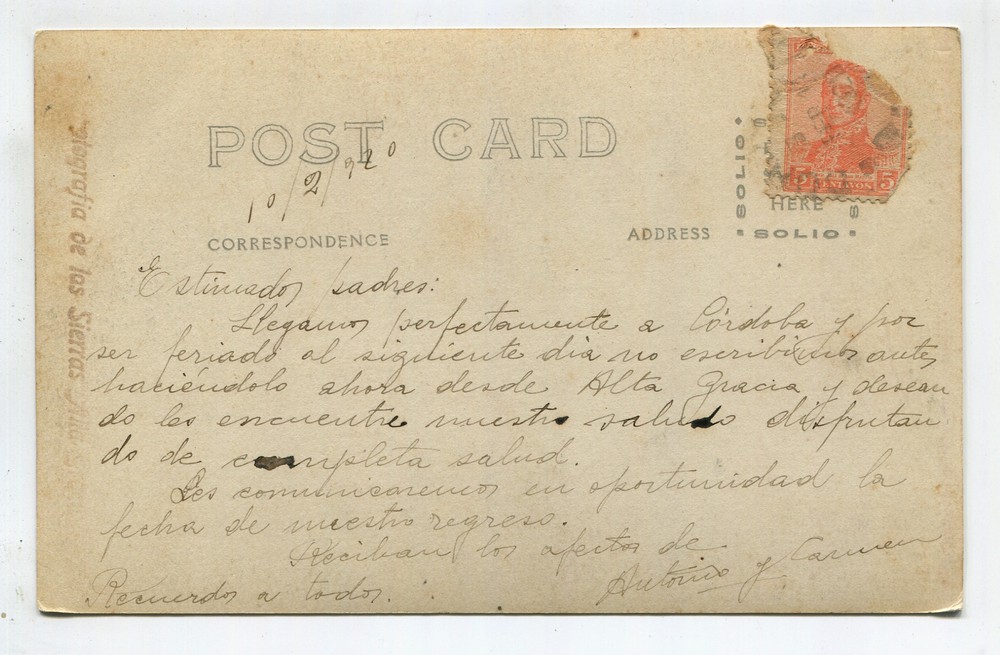 POST CARD
10/2/920
CORRESPONDENCE
ADDRESS
SOLIO
SOLIO
HERE
5 CENTAVOS 5
Estimados padres:
Llegamos perfectamente a Córdoba y por
ser feriado al siguiente dia no escribimos antes,
haciéndolo ahora desde Alta Gracia y desean
do les encuentre nuestro saludo disfrutan
do de completa salud.
Les comunicaremos en oportunidad la
fecha de nuestro regreso.
Reciban los afectos de
Antonio y Carmen
Recuerdos a todos.
tografia de las Sierras